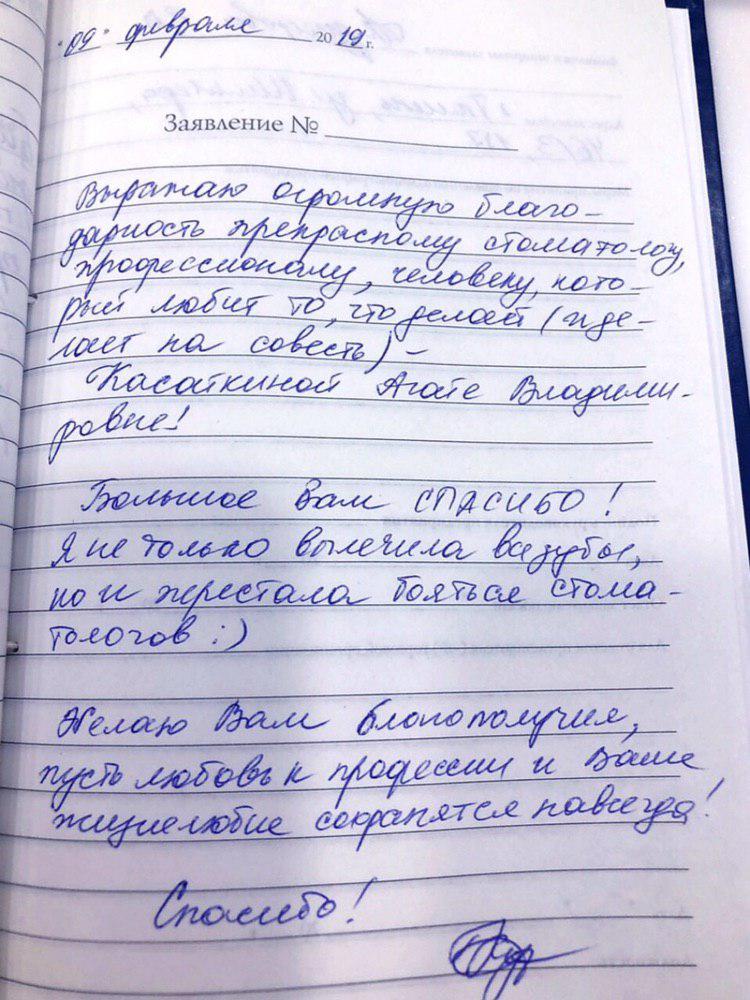 "09" февраля 2019 г.
Заявление №
Выражаю огромную благо-
дарность прекрасному стоматологу,
профессионалу, человеку, кото-
рый любит то, что делает (и де-
лает на совесть) –
Касаткиной Агате Владими-
ровне!
Большое Вам СПАСИБО!
Я не только вылечила все зубы,
но и перестала бояться стома-
тологов :)
Желаю Вам благополучия,
пусть любовь к профессии и Ваше
жизнелюбие сохранятся навсегда!
Спасибо!